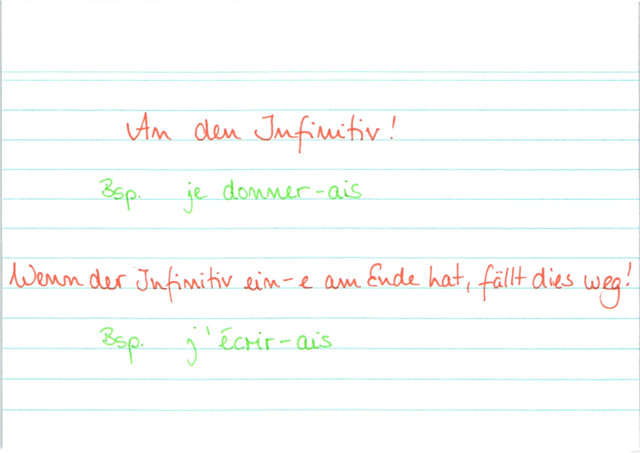 An den Infinitiv!
Bsp. je donner-ais
Wenn der Infinitiv ein -e am Ende hat, fällt dies weg!
Bsp. j'écrir-ais